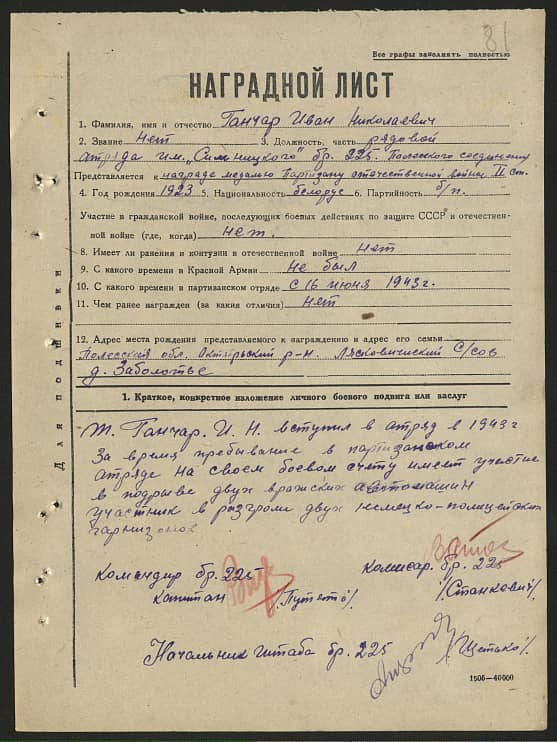 81
Все графы заполнять полностью
НАГРАДНОЙ ЛИСТ
1. Фамилия, имя и отчество Ганчар Иван Николаевич
2. Звание нет 3. Должность, часть рядовой
отряда им. „Сильницкого" бр. 225. Полесского соединению
Представляется к награде медалью Партизану отечественной войны II ст.
4. Год рождения 1923 5. Национальность белорус 6. Партийность б/п.
Участие в гражданской войне, последующих боевых действиях по защите СССР и отечествен-
ной войне (где, когда) нет.
8. Имеет ли ранения и контузии в отечественной войне нет
9. С какого времени в Красной Армии не был
10. С какого времени в партизанском отряде с 16 июня 1943 г.
11. Чем ранее награжден (за какия отличия) нет
12. Адрес места рождения представляемого к награждению и адрес его семьи
Полесская обл. Октябрьский р-н. Лясковичский С/сов
д. Заболотье
Для подшивки
1. Краткое, конкретное изложение личного боевого подвига или заслуг
Т. Ганчар. И. Н. вступил в отряд в 1943 г
За время пребывание в партизанском
отряде на своем боевом счету имеет участие
в подрыве двух вражских автомашин
участник в разгроми двух немецко-полицейских
гарнизонов.
Командир бр. 225 Комисар. бр. 225
Капитан /Путято/. /Станкович/.
Начальник штаба бр. 225 /Щетько/.
1506—40000